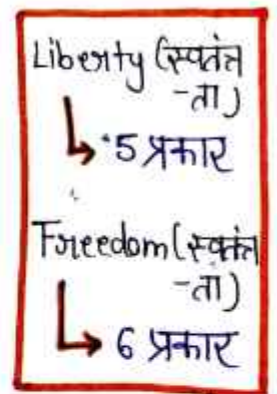 Liberty (स्वतंत्र
-ता)
5 प्रकार
Freedom (स्वतंत्र
-ता)
6 प्रकार